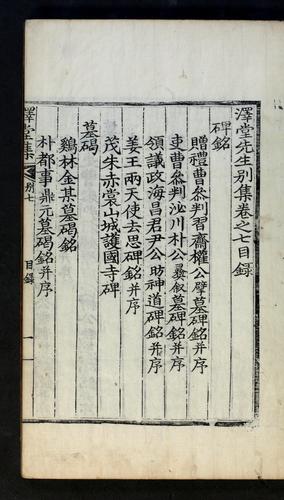 澤堂先生別集卷之七目錄
碑銘
贈禮曹參判習齋權公擘墓碑銘并序
吏曹參判汾川朴公彝叙墓碑銘并序
領議政海昌君尹公昉神道碑銘并序
姜王兩天使去思碑銘并序
茂朱赤裳山城護國寺碑
墓碣
鷄林金某墓碣銘
朴都事鼎元墓碣銘并序
澤堂集
別七
目錄
一